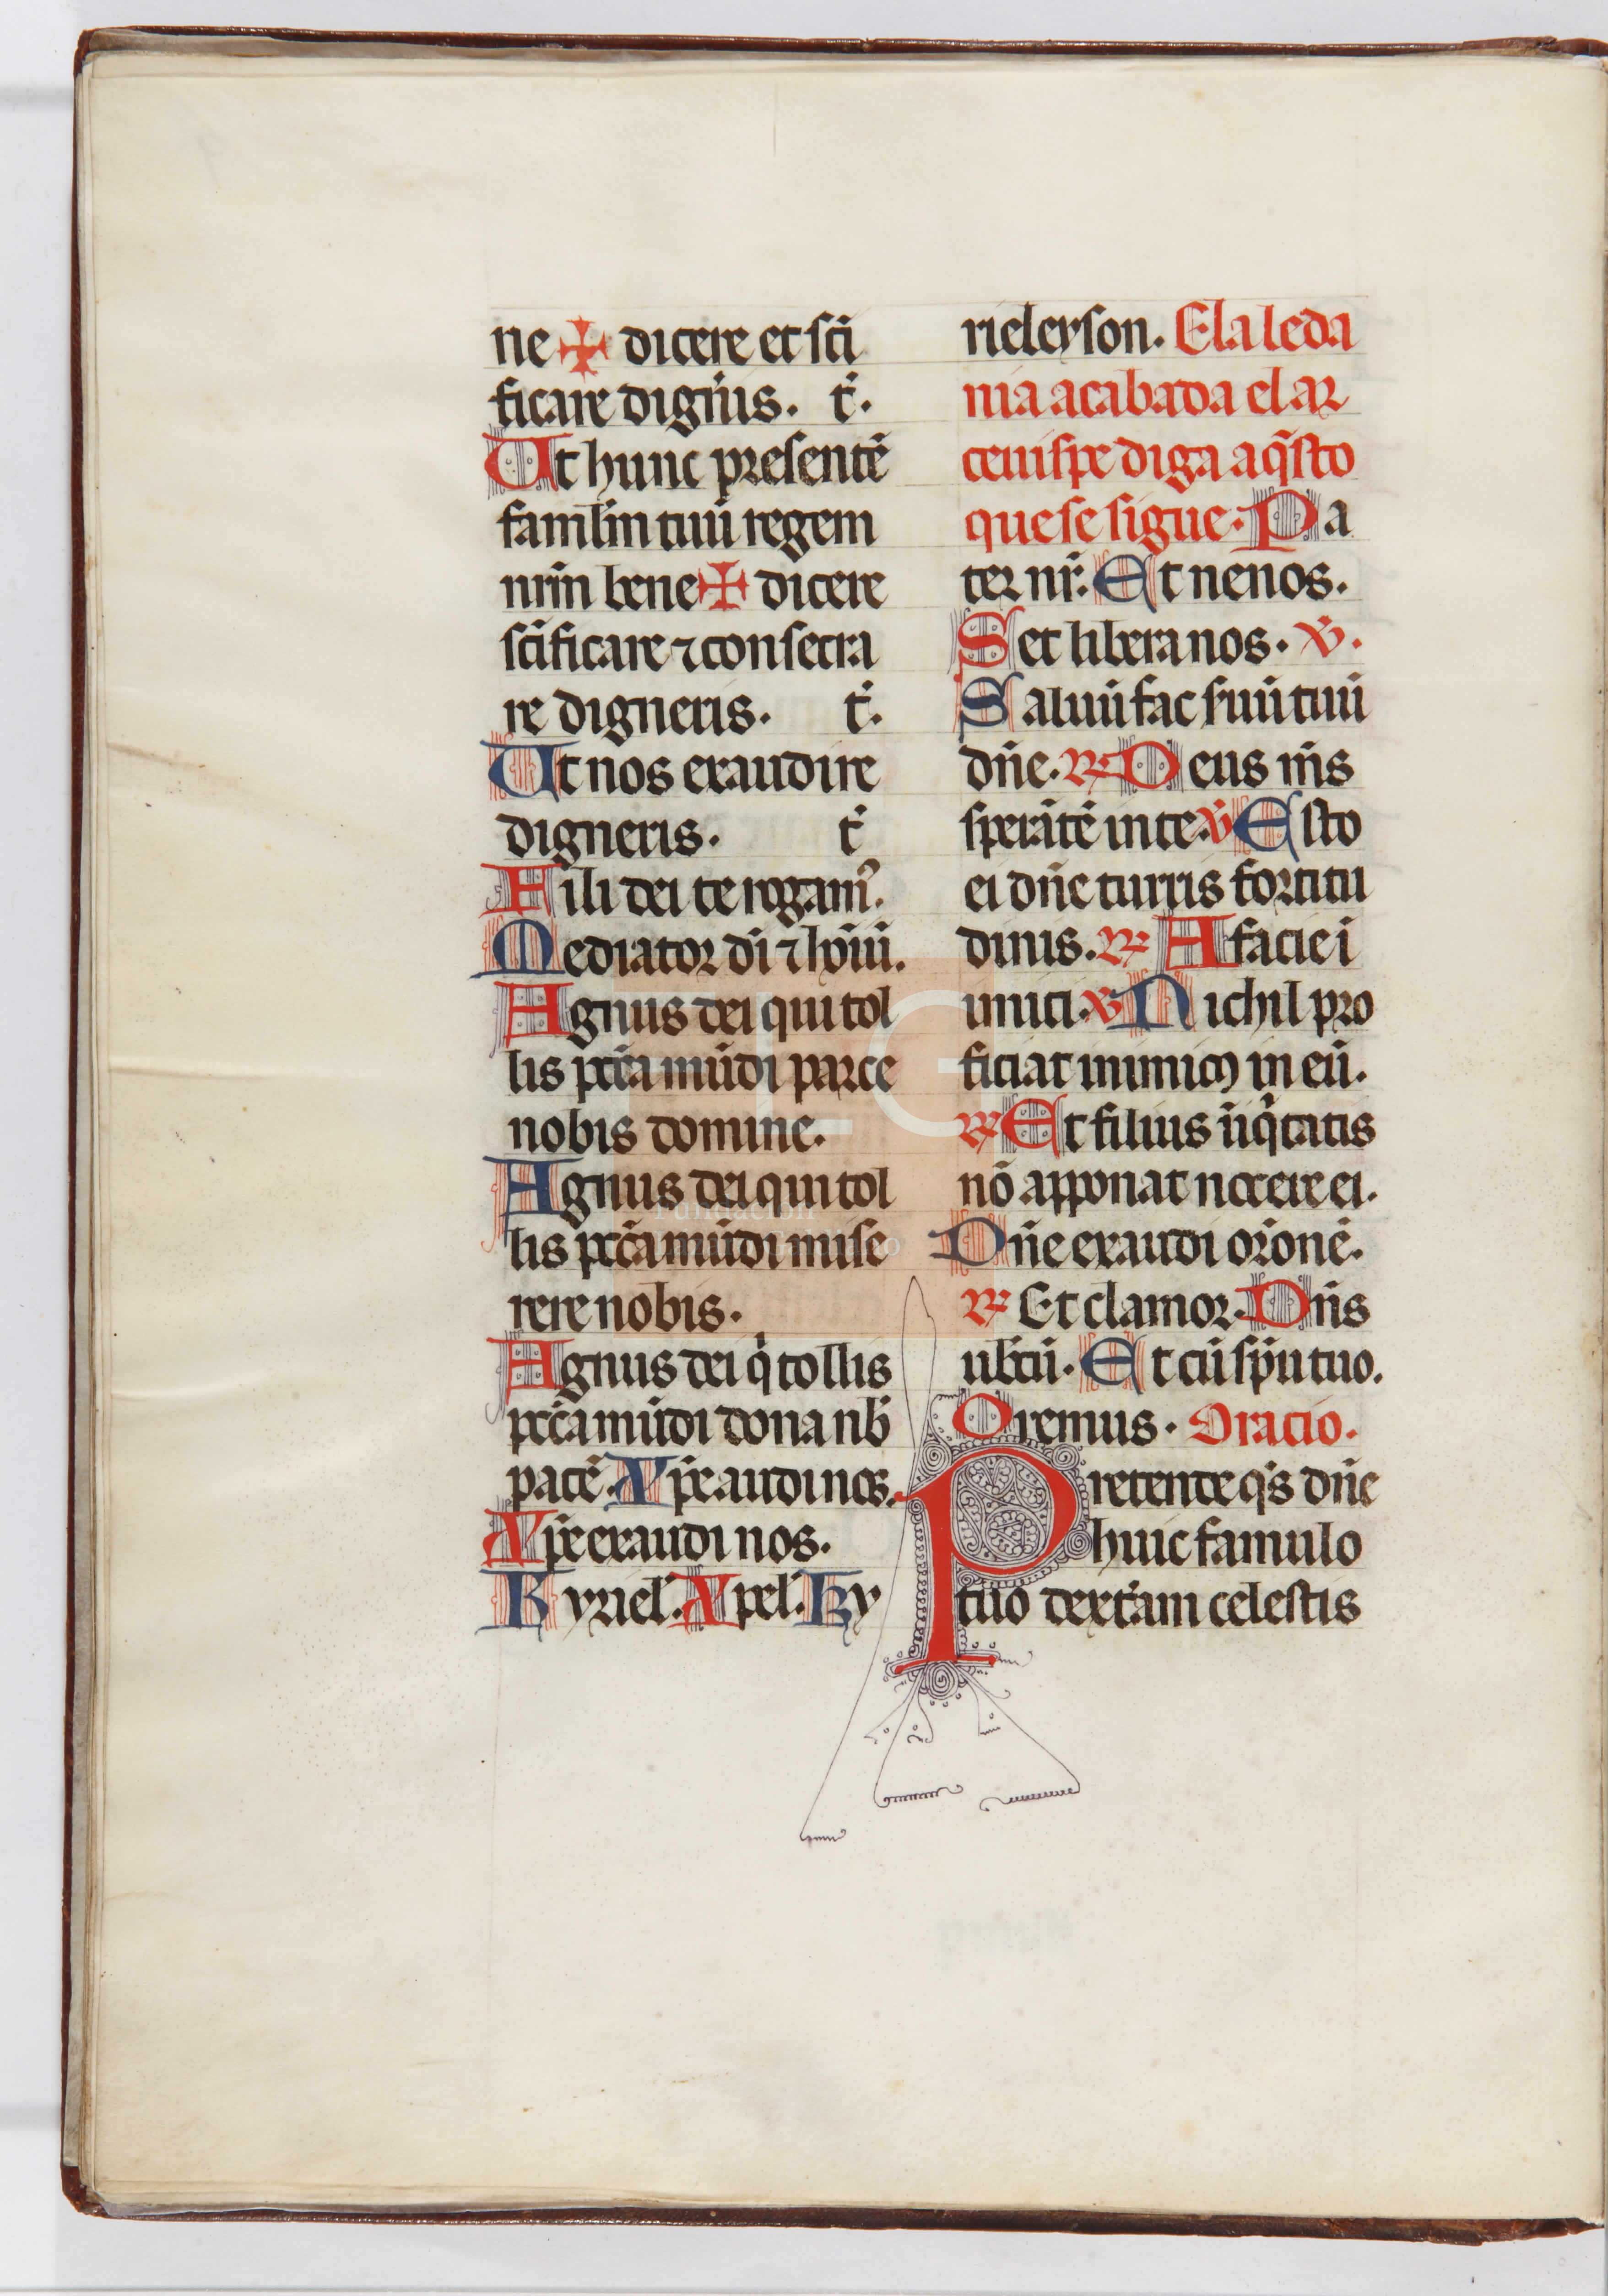 ne ✠ dicere et sc̄i
ficare dign̄is. t̄.
Ut hunc presentē
famlm̄ tuū regem
nr̄m bene ✠ dicere
sc̄ificare ⁊ consecra
re digneris. t̄.
Ut nos exaudire
digneris. t̄
Fili dei te rogam᷒.
Mediator dī ⁊ hoīū.
Agnus dei qui tol
lis pctā mūdi parce
nobis domine.
Agnus dei qui tol
lis pctā mūdi mise
rere nobis.
Agnus dei q̇ tollis
pctā mūdi dona nb̄
pacē. Xp̄e audi nos.
Xp̄e exaudi nos.
Kyriel̄. Xpel̄. Ky
rieleyson. E la leda
nia acabada el ar
ceuispe diga aq̄sto
que se sigue. Pa
ter nr̄. Et ne nos.
Set libera nos. ℣.
Saluū fac ẜuū tuū
dn̄e. ℞ Deus m̄s
sperātē in te. ℣ Esto
ei dn̄e turris fortitu
dinis. ℞ A facie i
nimici. ℣ Nichil pro
ficiat inimicꝯ in eū.
℞ Et filius īiq̇tatis
nō apponat nocere ei.
Dn̄e exaudi orōnē.
℞ Et clamor. Dn̄s
ubc̄ū. Et cū sp̄u tuo.
Oremus. Oracio.
Pretende q̄s dn̄e
huic famulo
tuo dext̄am celestis
FLG
Fundación